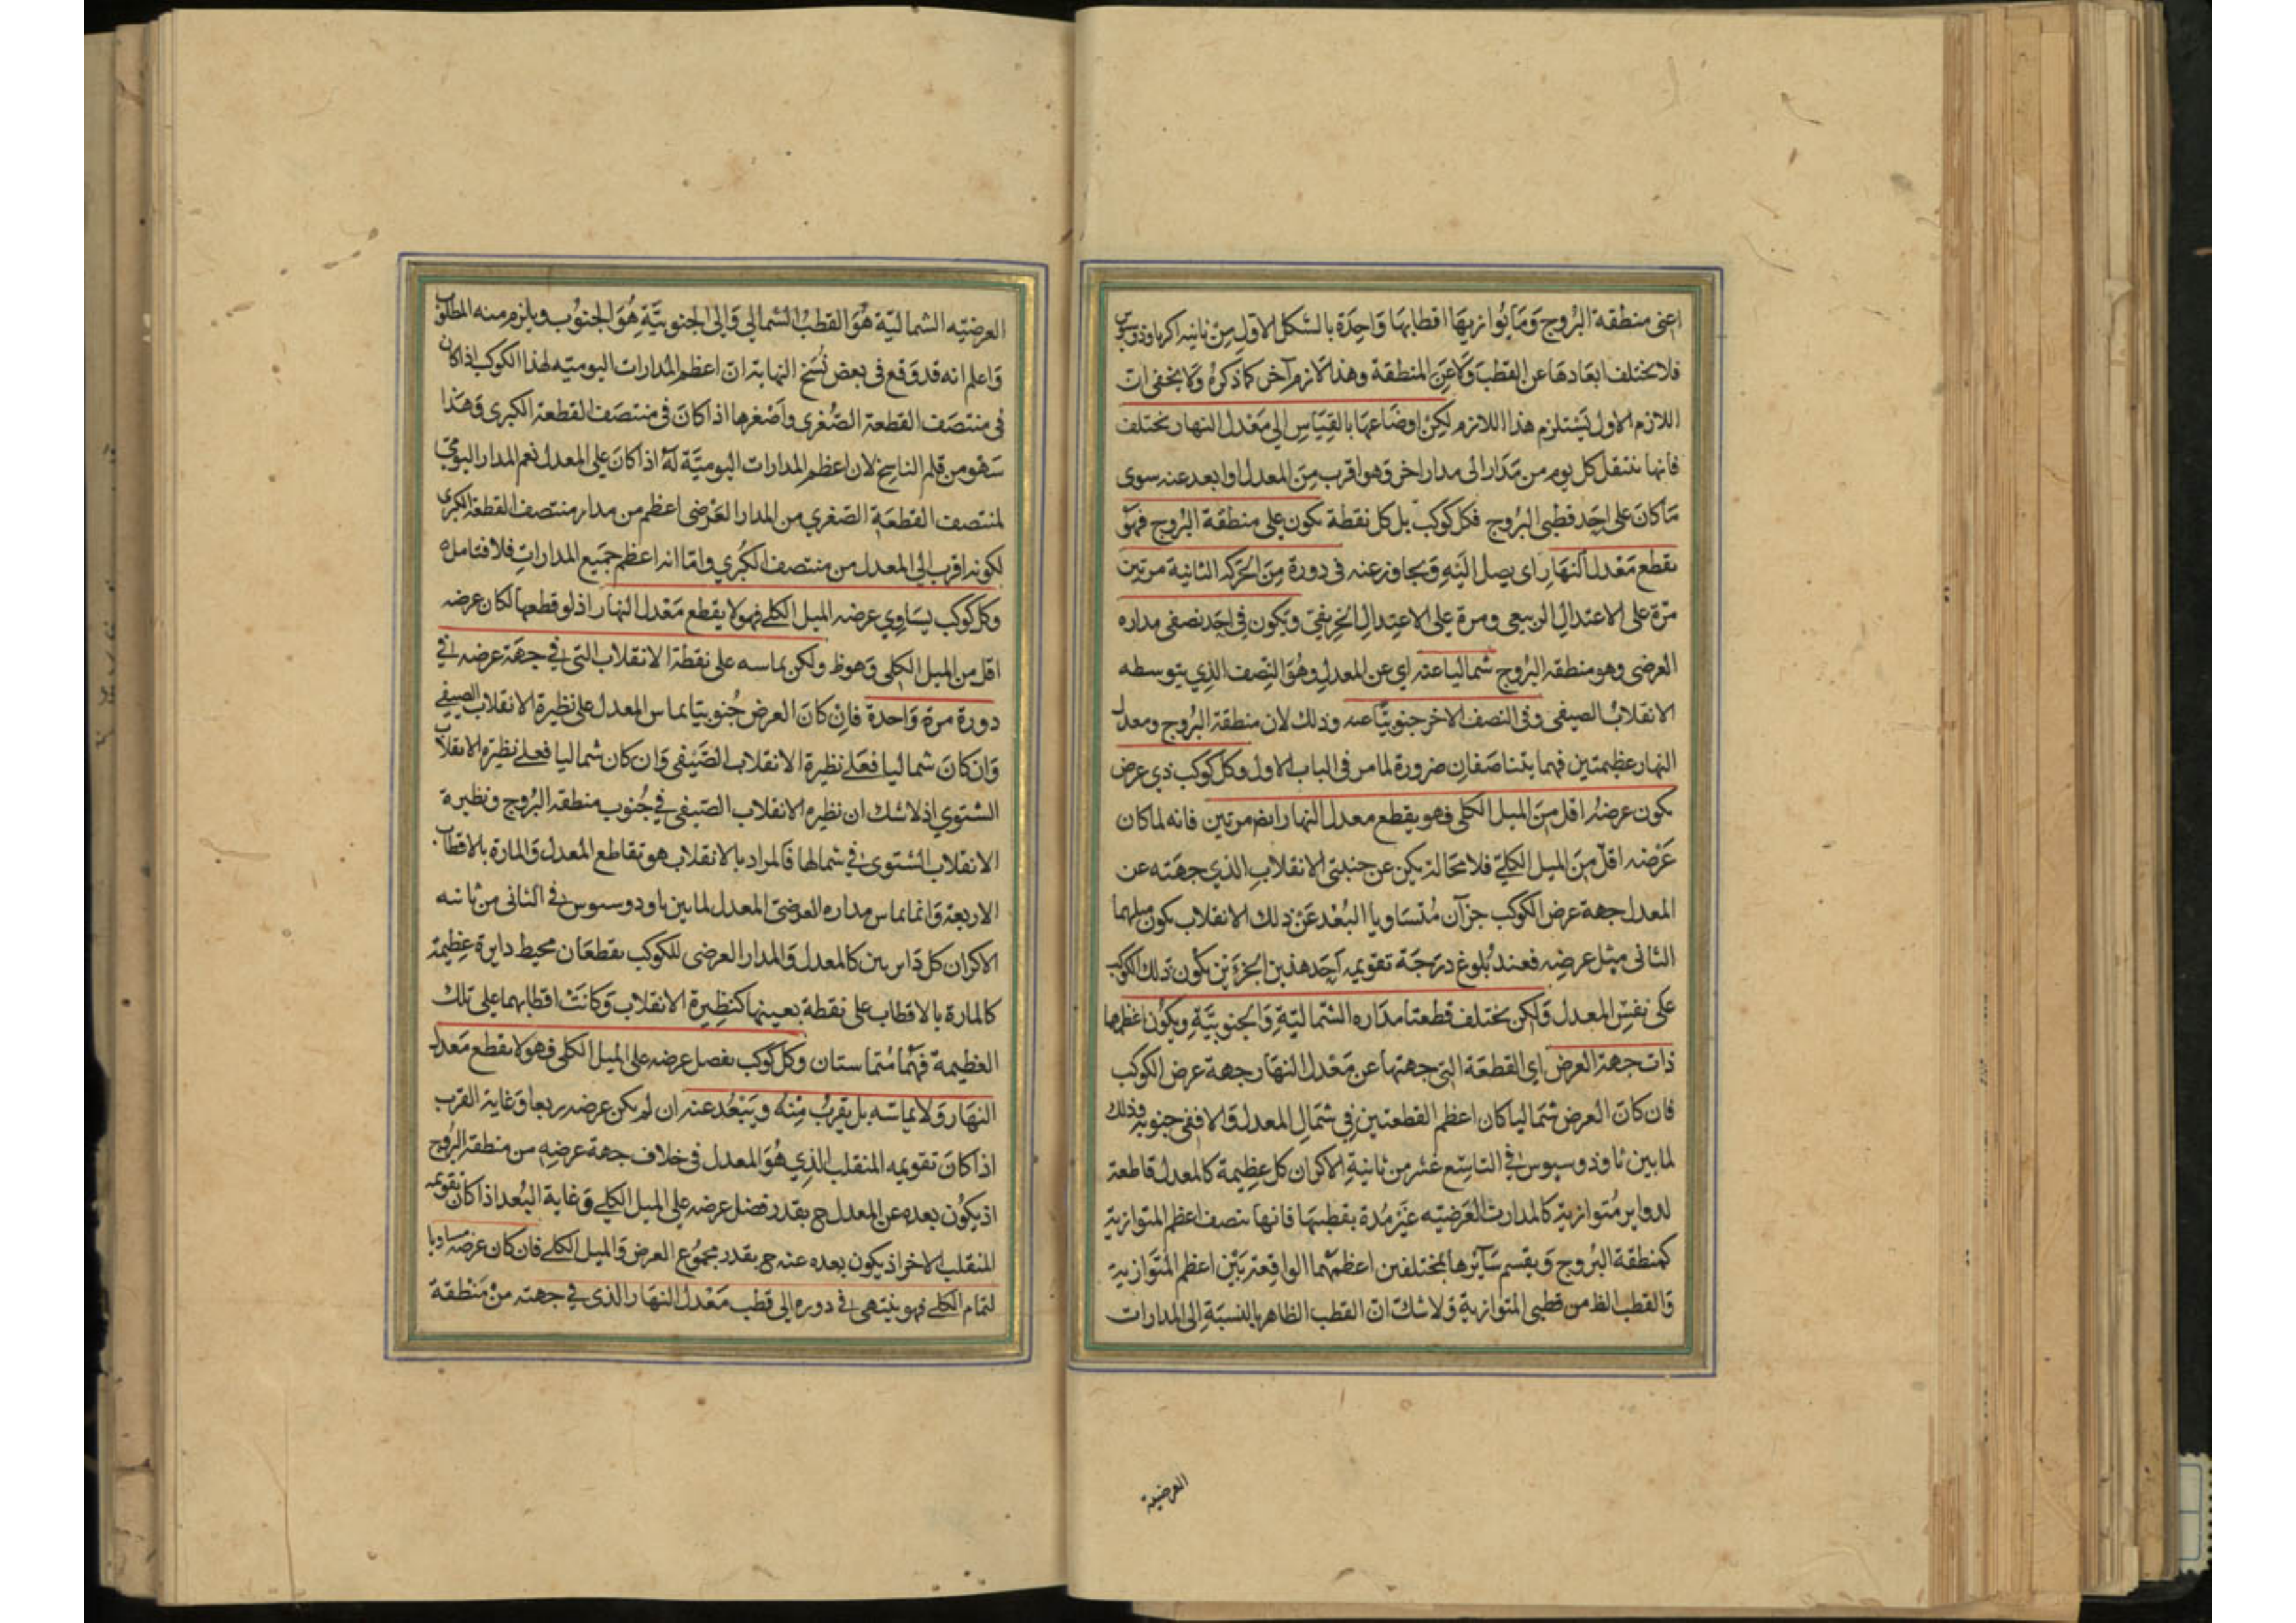 اعنى منطقة البروج وما يوازيها اقطابها واحدة بالشكل الاول من ثانية اكر ثاوذوسيوس
فلا يختلف ابعادها عن القطب ولا عن المنطقة وهذا لازم آخر كما ذكره ولا يخفى ان
اللازم الاول يستلزم هذا اللازم لكن اوضاعها بالقياس الى معدل النهار يختلف
فانها تنتقل كل يوم من مدار الى مدار اخر وهو اقرب من المعدل او ابعد عنه سوى
ما كان على احد قطبى البروج فكل كوكب بل كل نقطة يكون على منطقة البروج فهو
يقطع معدل النهار اى يصل اليه ويجاوز عنه فى دورة من الحركة الثانية مرتين
مرة على الاعتدال الربيعى ومرة على الاعتدال الخريفى ويكون فى احد نصفى مداره
العرضى وهو منطقة البروج شماليا عنه اي عن المعدل وهو النصف الذي يتوسطه
الانقلاب الصيفى وفى النصف الاخر جنوبيا عنه وذلك لان منطقة البروج ومعدل
النهار عظيمتين فهما يتناصفان ضرورة لما مر فى الباب الاول وكل كوكب ذي عرض
يكون عرضه اقل من الميل الكلى فهو يقطع معدل النهار ايضا مرتين فانه لما كان
عرضه اقل من الميل الكلي فلا محالة يكن عن جنبتى الانقلاب الذي جهته عن
المعدل جهة عرض الكوكب جزآن متساويا البعد عن ذلك الانقلاب يكون ميلهما
الثانى مثل عرضه فعند بلوغ درجة تقويمه احد هذين الجزءين يكون ذلك الكوكب
على نفس المعدل ولكن يختلف قطعتا مداره الشمالية والجنوبية ويكون اعظمها
ذات جهة العرض اي القطعة التى جهتها عن معدل النهار جهة عرض الكوكب
فان كان العرض شماليا كان اعظم القطعتين فى شمال المعدل والا ففى جنوبه وذلك
لما بين ثاوذوسيوس فى التاسع عشر من ثانية الاكر ان كل عظيمة كالمعدل قاطعة
لدواير متوازية كالمدارات العرضيه غير مارة بقطبيها فانها تنصف اعظم المتوازية
كمنطقة البروج ويقسم سآئرها بمختلفين اعظمهما الواقعة بين اعظم المتوازية
والقطب الظ من قطبى المتوازية ولا شك ان القطب الظاهر بالنسبة الى المدارات
العرضية
العرضيه الشمالية هو القطب الشمالي والى الجنوبية هو الجنوب ويلزم منه المطلوب
واعلم انه قد وقع فى بعض نسخ النهاية ان اعظم المدارات اليومية لهذا الكوكب اذا كان
فى منتصف القطعة الصغرى واصغرها اذا كان فى منتصف القطعة الكبرى وهذا
سهو من قلم الناسخ لان اعظم المدارات اليومية له اذا كان على المعدل نعم المدار اليومي
لمنتصف القطعة الصغري من المدار العرضى اعظم من مدار منتصف القطعة الكبرى
لكونه اقرب الى المعدل من منتصف الكبري واما انه اعظم جميع المدارات فلا فتامل
وكل كوكب يساوي عرضه الميل الكلى فهو لا يقطع معدل النهار اذ لو قطعها لكان عرضه
اقل من الميل الكلى وهو ظ ولكن يماسه على نقطة الانقلاب التى فى جهة عرضه فى
دورة مرة واحدة فان كان العرض جنوبيا يماس المعدل على نظيرة الانقلاب الصيفى
وان كان شماليا فعلى نظيرة الانقلاب الصيفى وان كان شماليا فعلى نظيرة الانقلاب
الشتوي اذ لا شك ان نظيره الانقلاب الصيفى فى جنوب منطقة البروج ونظيرة
الانقلاب الشتوى فى شمالها فالمراد بالانقلاب هو تقاطع المعدل والمارة بالاقطاب
الاربعة وانما يماس مداره العرضى المعدل لما بين ثاودوسيوس فى الثانى من ثانية
الاكر ان كل دايرتين كالمعدل والمدار العرضى للكوكب يقطعان محيط دايرة عظيمة
كالمارة بالاقطاب على نقطة بعينها كنظيرة الانقلاب وكانت اقطابهما على تلك
العظيمة فهما متماستان وكل كوكب يفصل عرضه على الميل الكلى فهو لا يقطع معدل
النهار ولا يماسه بل يقرب منه ويبعد عنه ان لم يكن عرضه ربعا وغاية القرب
اذا كان تقويمه المنقلب الذي هو المعدل فى خلاف جهة عرضه من منطقة البروج
اذ يكون بعده عن المعدل ح بقدر فضل عرضه على الميل الكلى وغاية البعد اذا كان تقويمه
المنقلب الاخر اذ يكون بعده عنه ح بقدر مجموع العرض والميل الكلى فان كان عرضه مساويا
لتمام الكلى فهو ينتهى فى دوره الى قطب معدل النهار الذى فى جهته من منطقة